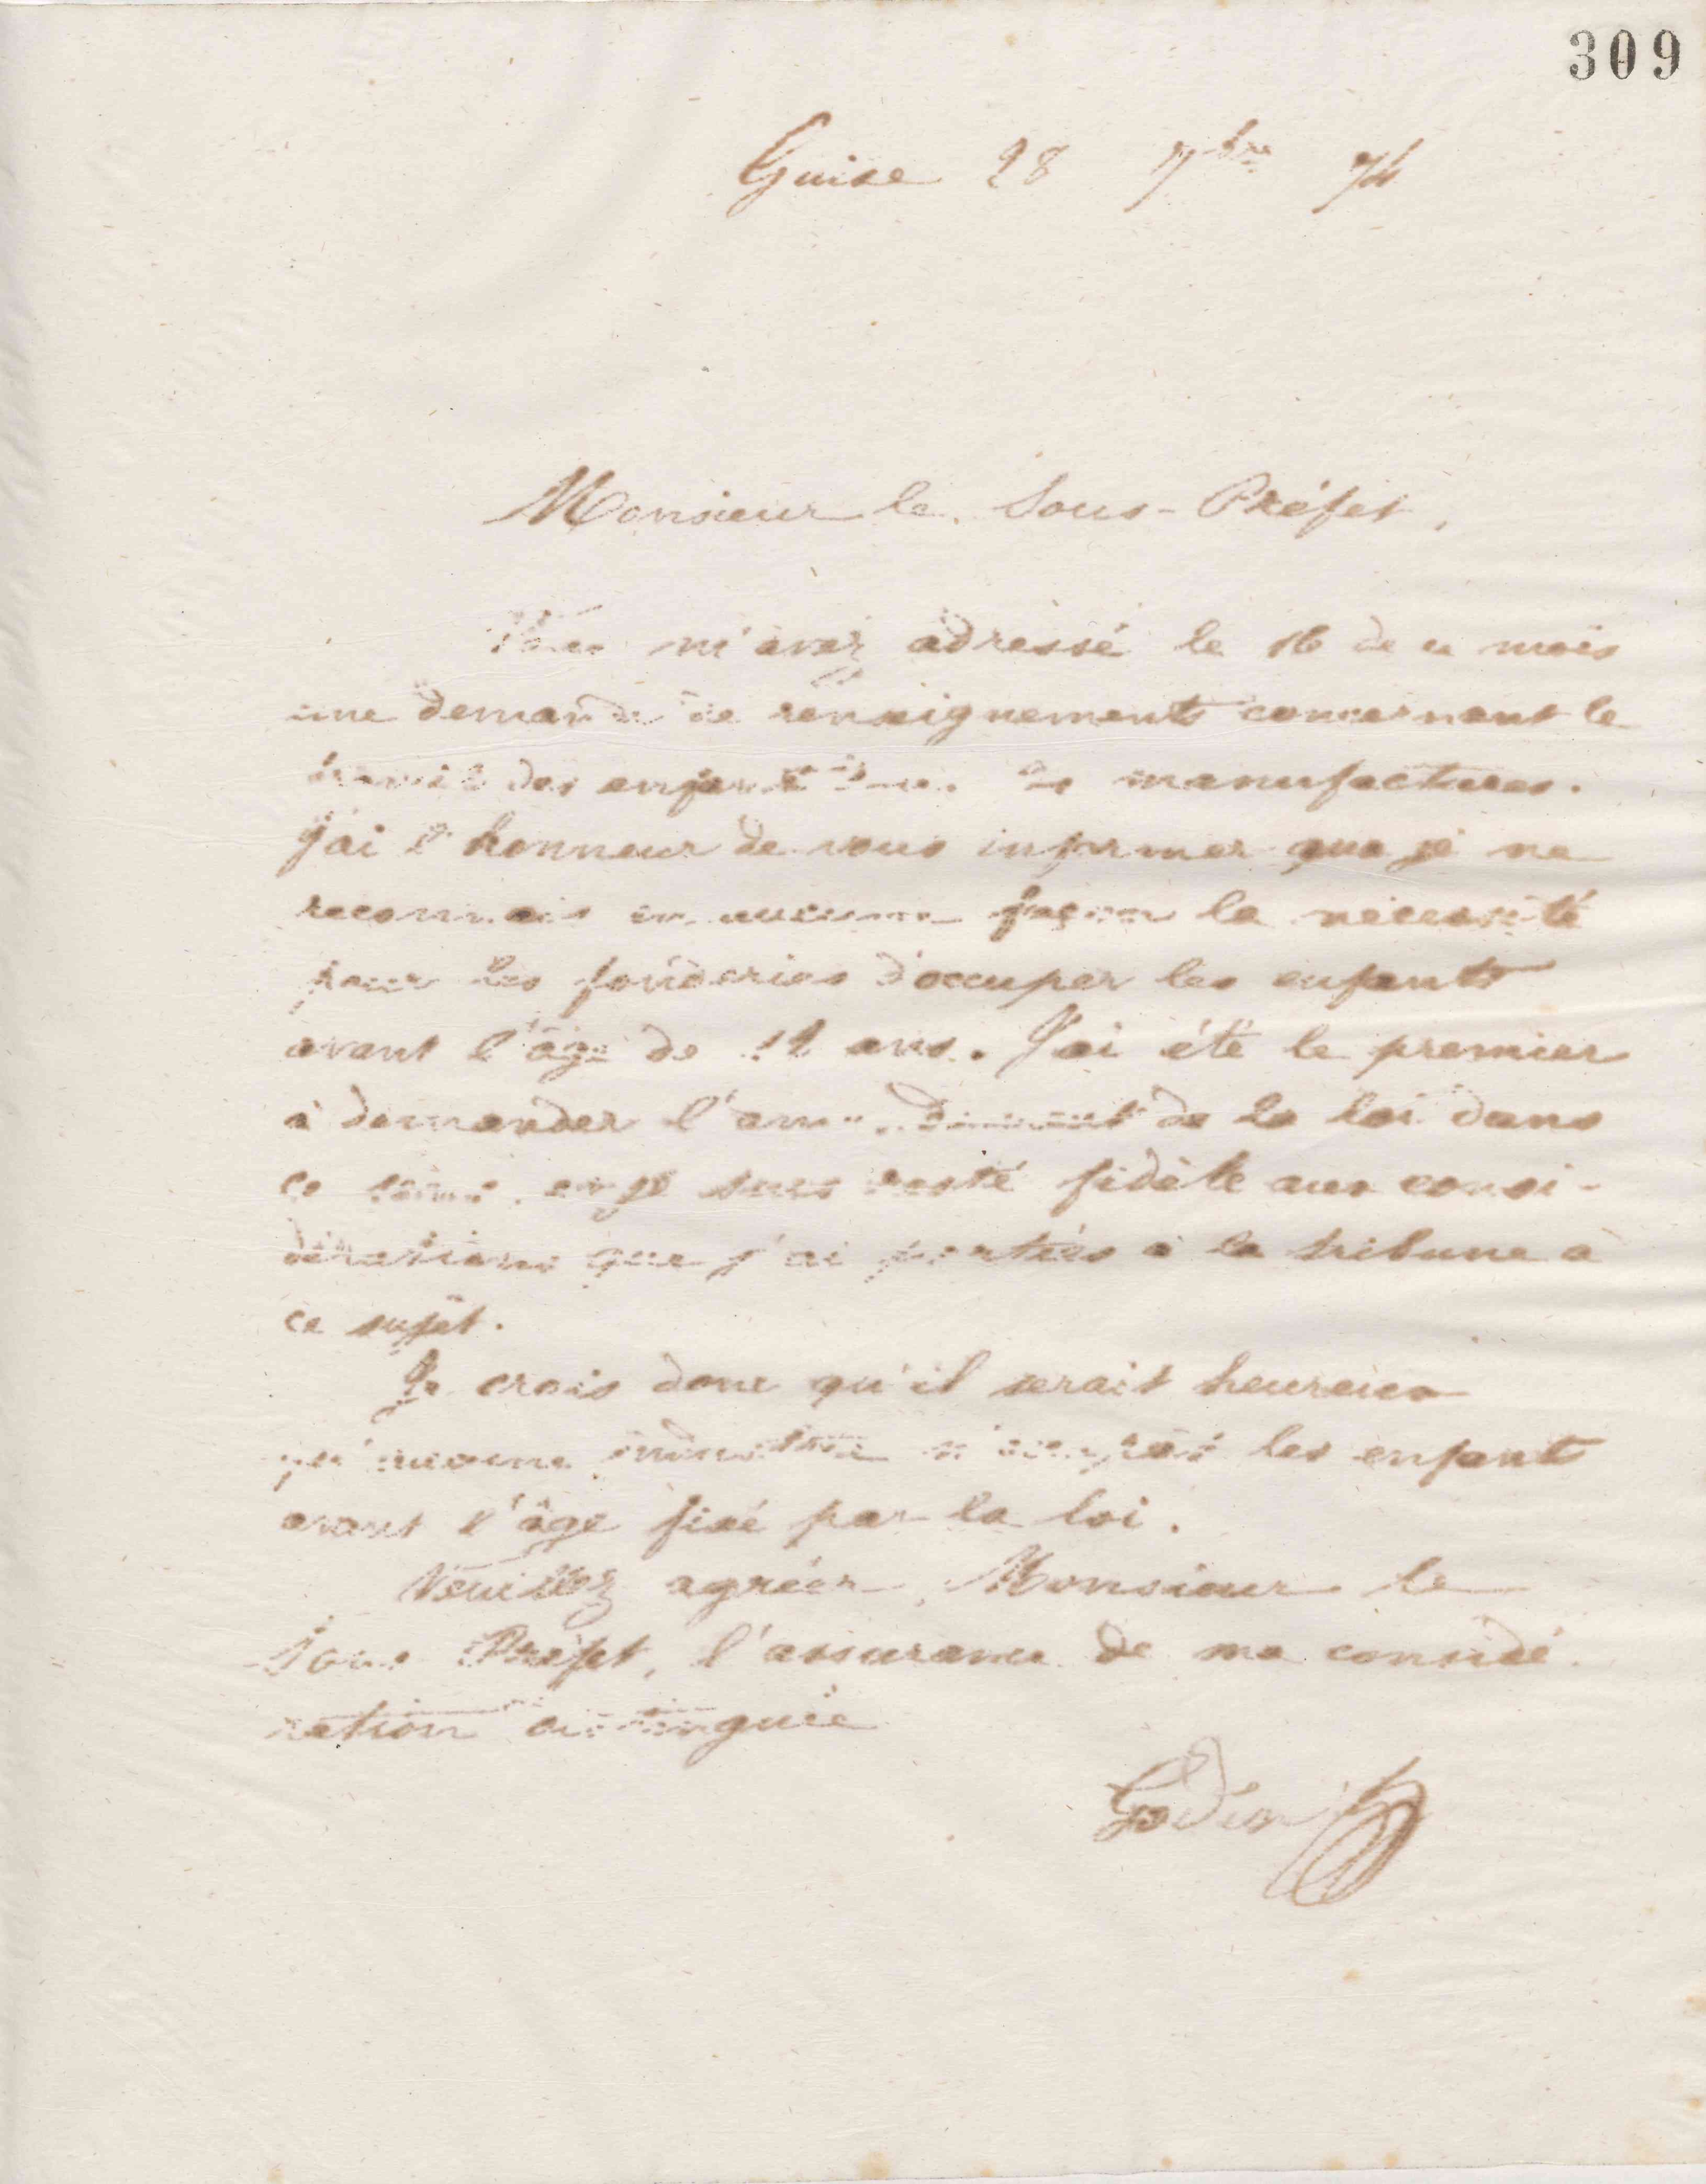 309
Guise 28 7bre 74
Monsieur le Sous-Préfet,
Vous m'avez adressé le 16 de ce mois
une demande de renseignements concernant le
travail des enfants dans les manufactures.
J'ai l'honneur de vous informer que je ne
reconnais en aucune façon la nécessité
pour les fonderies d'occuper les enfants
avant l'âge de 12 ans. J'ai été le premier
à demander l'amendement de la loi dans
ce sens et je suis resté fidèle aux consi-
dérations que j'ai portées à la tribune à
ce sujet.
Je crois donc qu'il serait heureux
qu'aucune industrie n'occupât les enfants
avant l'âge fixé par la loi.
Veuillez agréer, Monsieur le
Sous Préfet, l'assurance de ma considé
ration distinguée
Godin